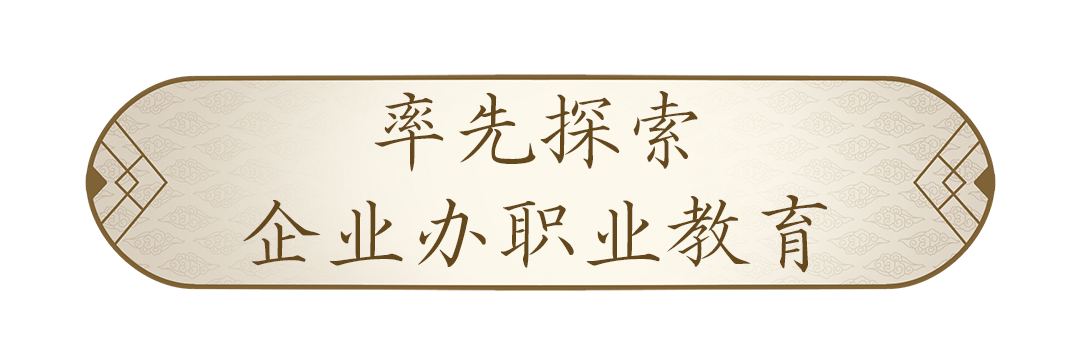 率先探索
企业办职业教育